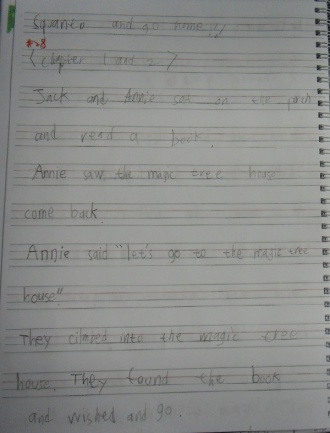 and go home.
#28
(chapter 1 and 2)
Jack and Annie sat on the porch
and read a book.
Annie saw the magic tree house
come back.
Annie said "let's go to the magic tree
house"
They cilmbed into the magic tree
house. They found the book
and wished and go.